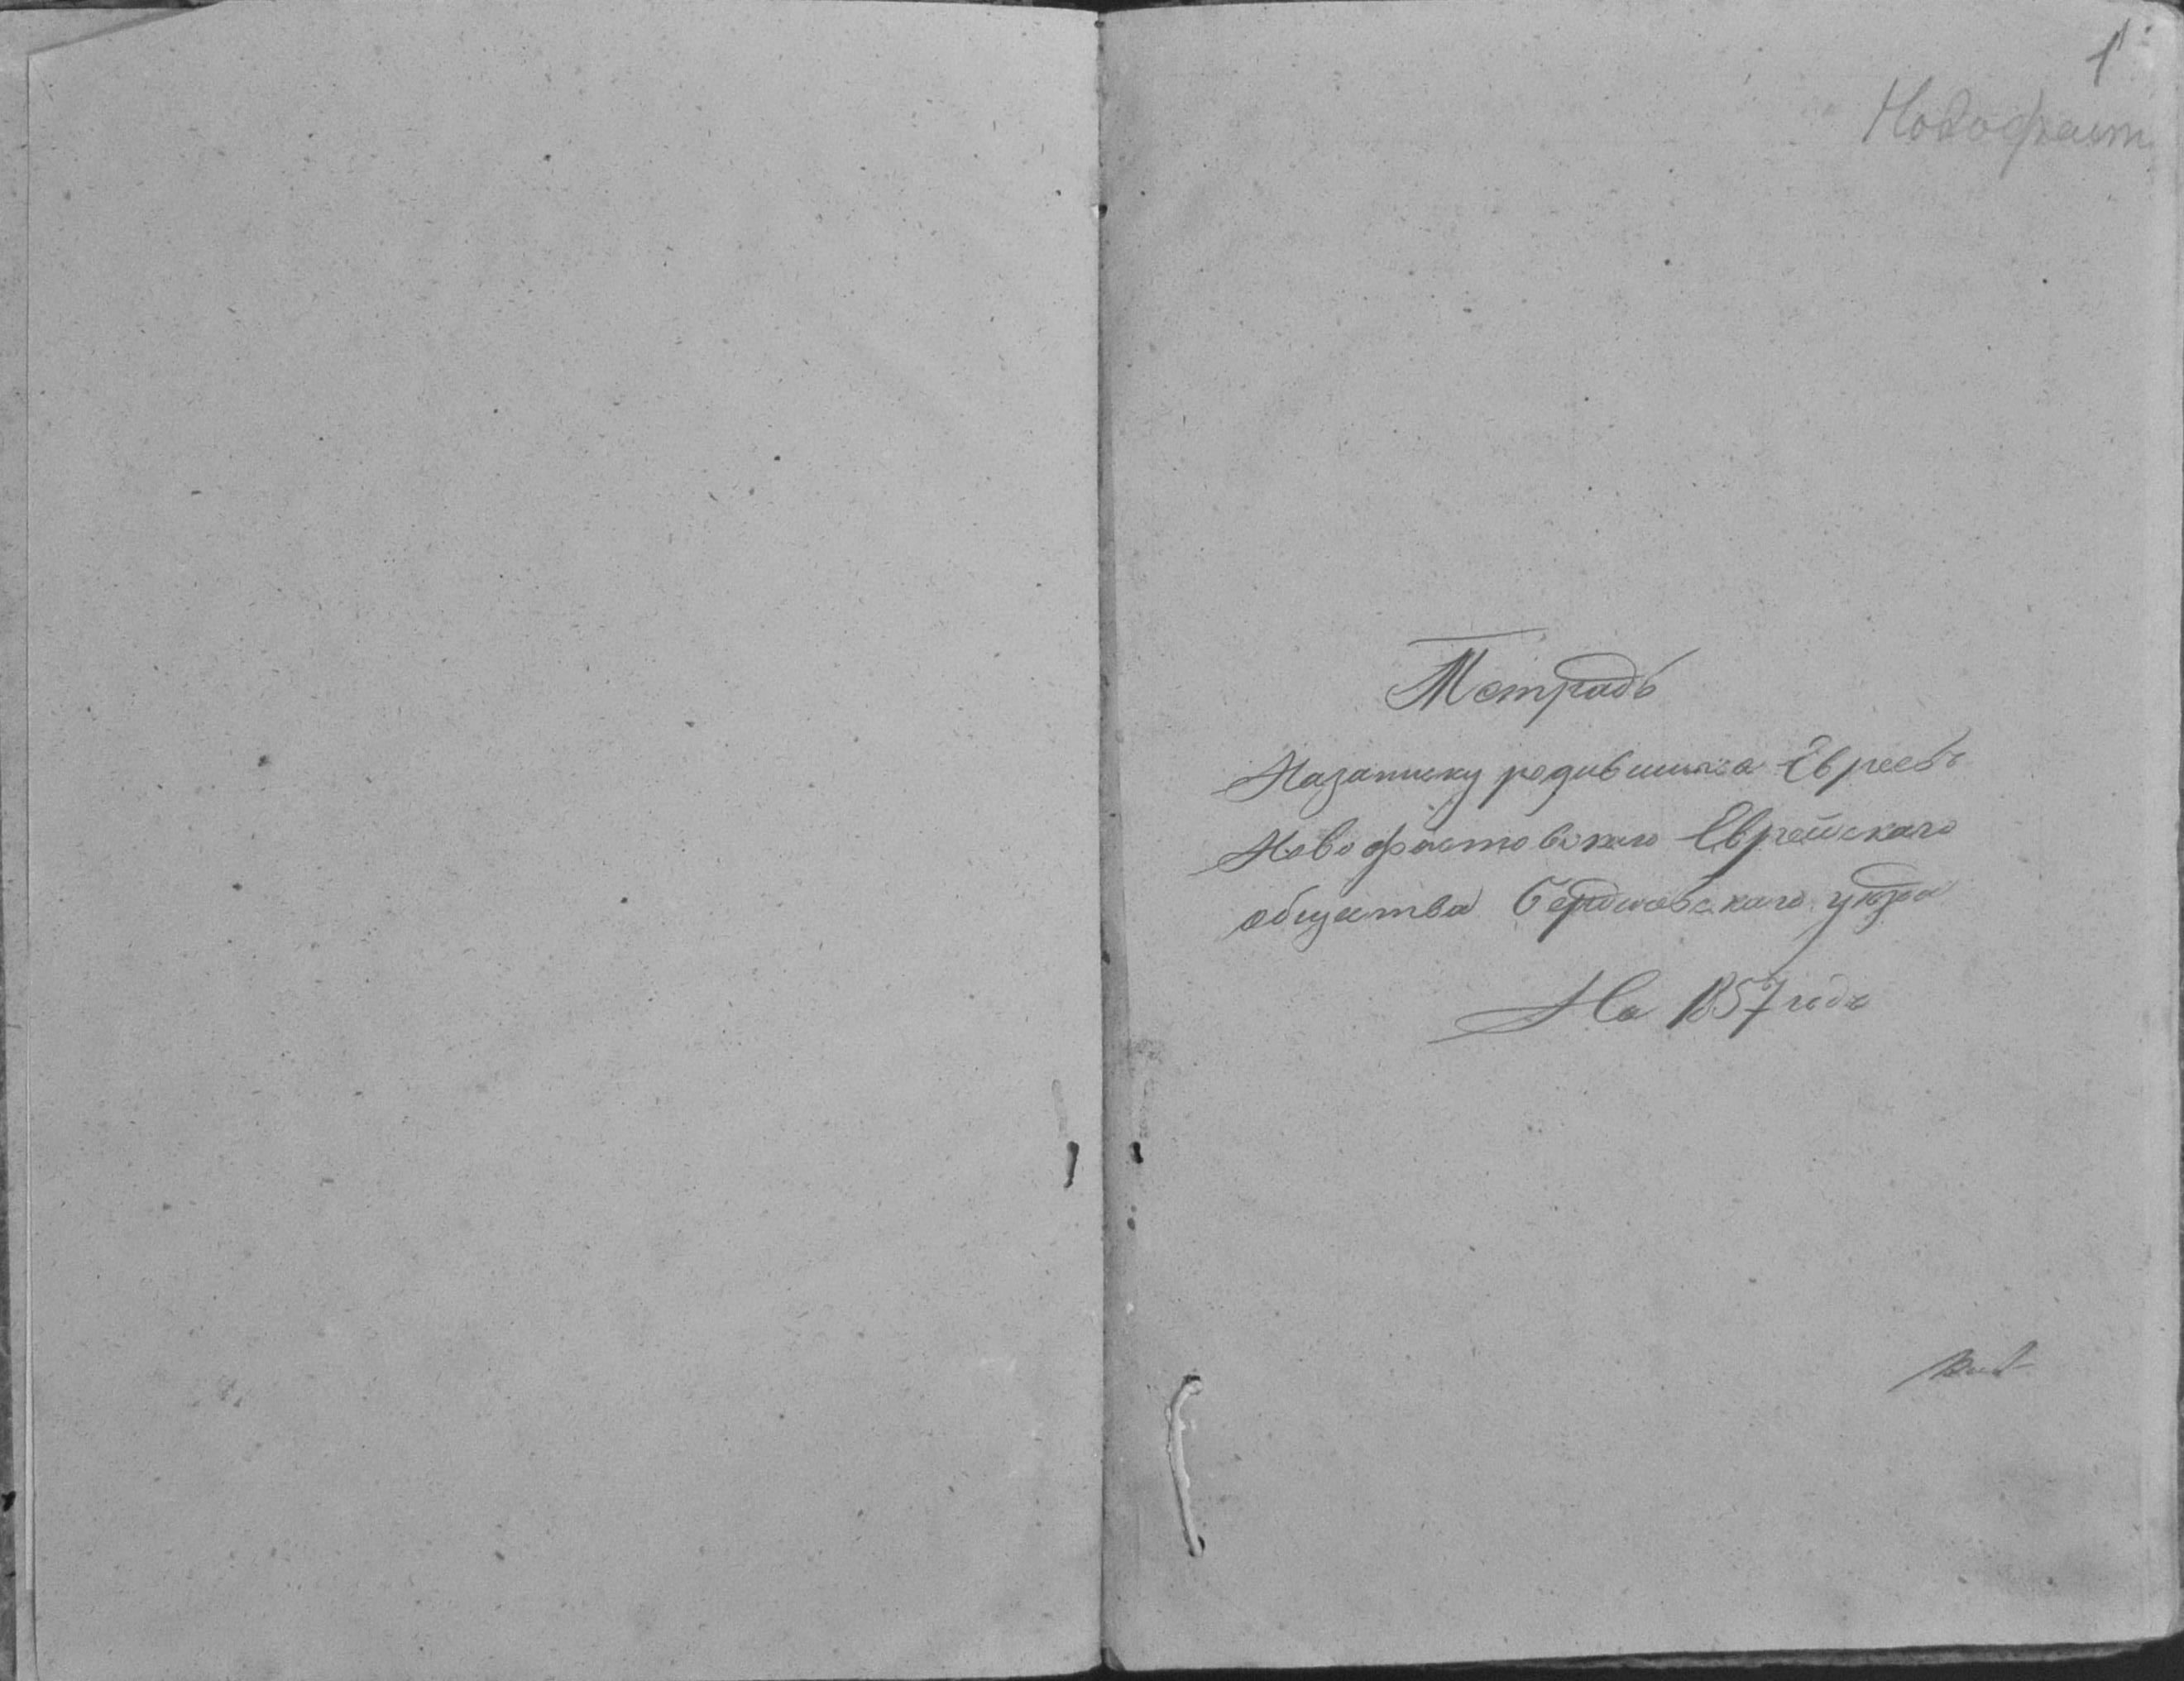 1
Новофаст
Тетрадь
Назаписку родившихся Евреевъ
Новофастовскаго Еврейскаго
общества Бердичевскаго уезда
На 1857 годъ